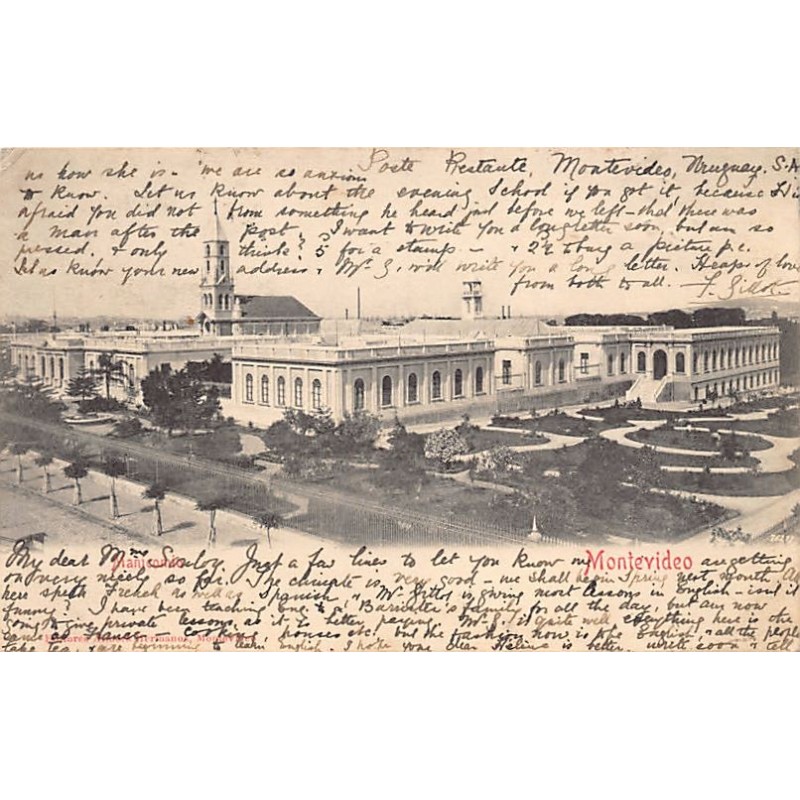 us how she is - we are so anxious
Poste Restante, Montevideo, Uruguay. S.A
to know. Let us know about the evening School if you got it, because
afraid you did not from something he heard just before we left - that there was
a man after the post, I want to write you a long letter soon, but am so
pressed. & only think! 5 for a stamp - & 2 to buy a picture p.c.
Let us know your new address & Mr G. will write you a long letter. Heaps of love
from both to all. -
My dear Just a few lines to let you know we are getting
on very nicely so far. The climate is very good - we shall begin Spring next month. All
here speak French as well as Spanish & Mr is giving most lessons in English - isn't it
funny? I have been teaching Eng. to a Barrister's family for all the day, but am now
going to give private lessons, as it is better paying. Mr G. is quite well everything here is the
same as France - houses etc. but the fashion now is the English, & all the people
take tea, & are beginning to learn English. I hope your dear is better. write soon & tell
Manicomio
Montevideo
Hermanos, Montevideo